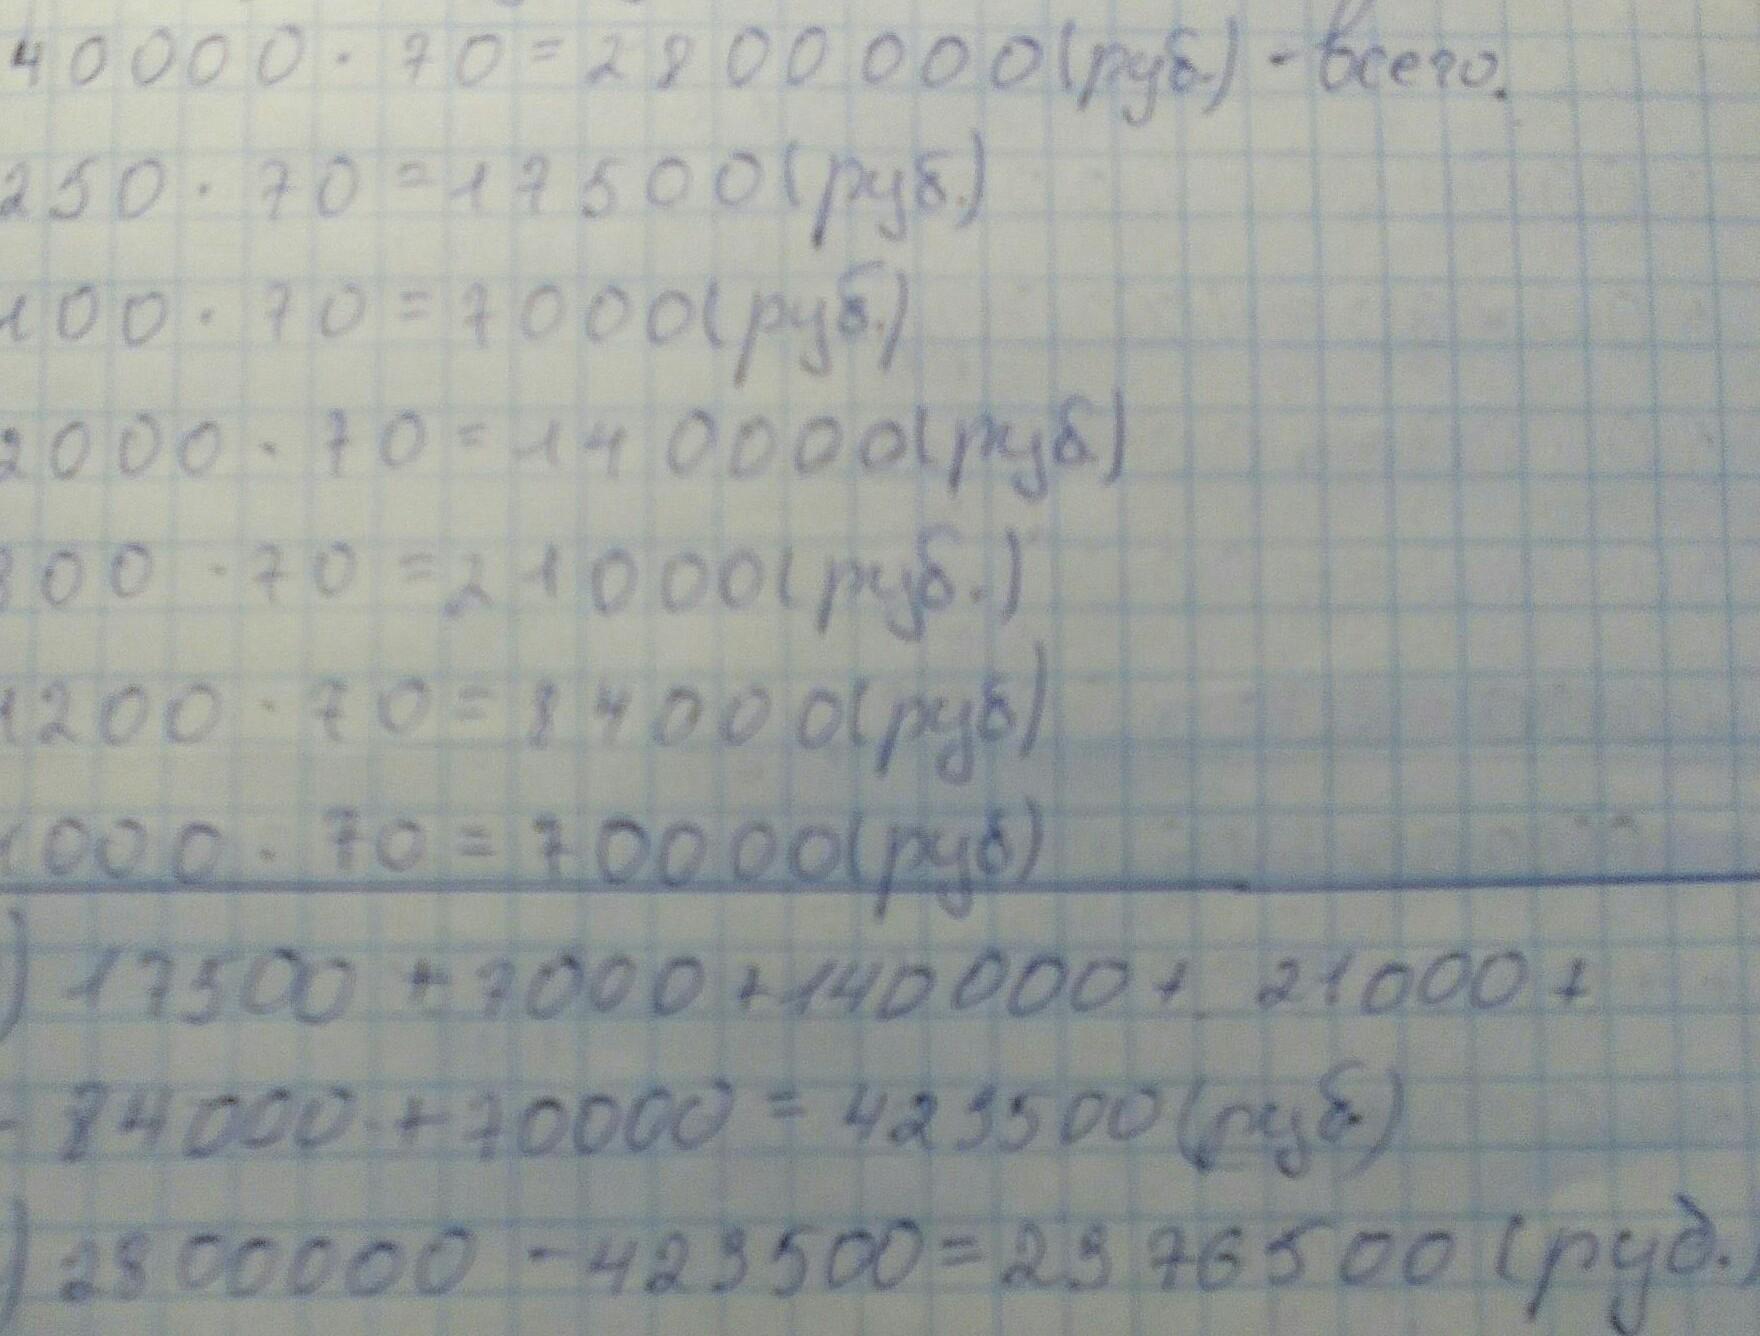 40000 · 70 = 2800000 (руб.) - всего.
250 · 70 = 17500 (руб.)
100 · 70 = 7000 (руб.)
2000 · 70 = 140000 (руб)
300 · 70 = 21000 (руб.)
1200 · 70 = 84000 (руб)
1000 · 70 = 70000 (руб)
) 17500 + 7000 + 140000 + 21000 +
- 84000 + 70000 = 423500 (руб)
) 2800000 - 423500 = 2376500 (руб.)